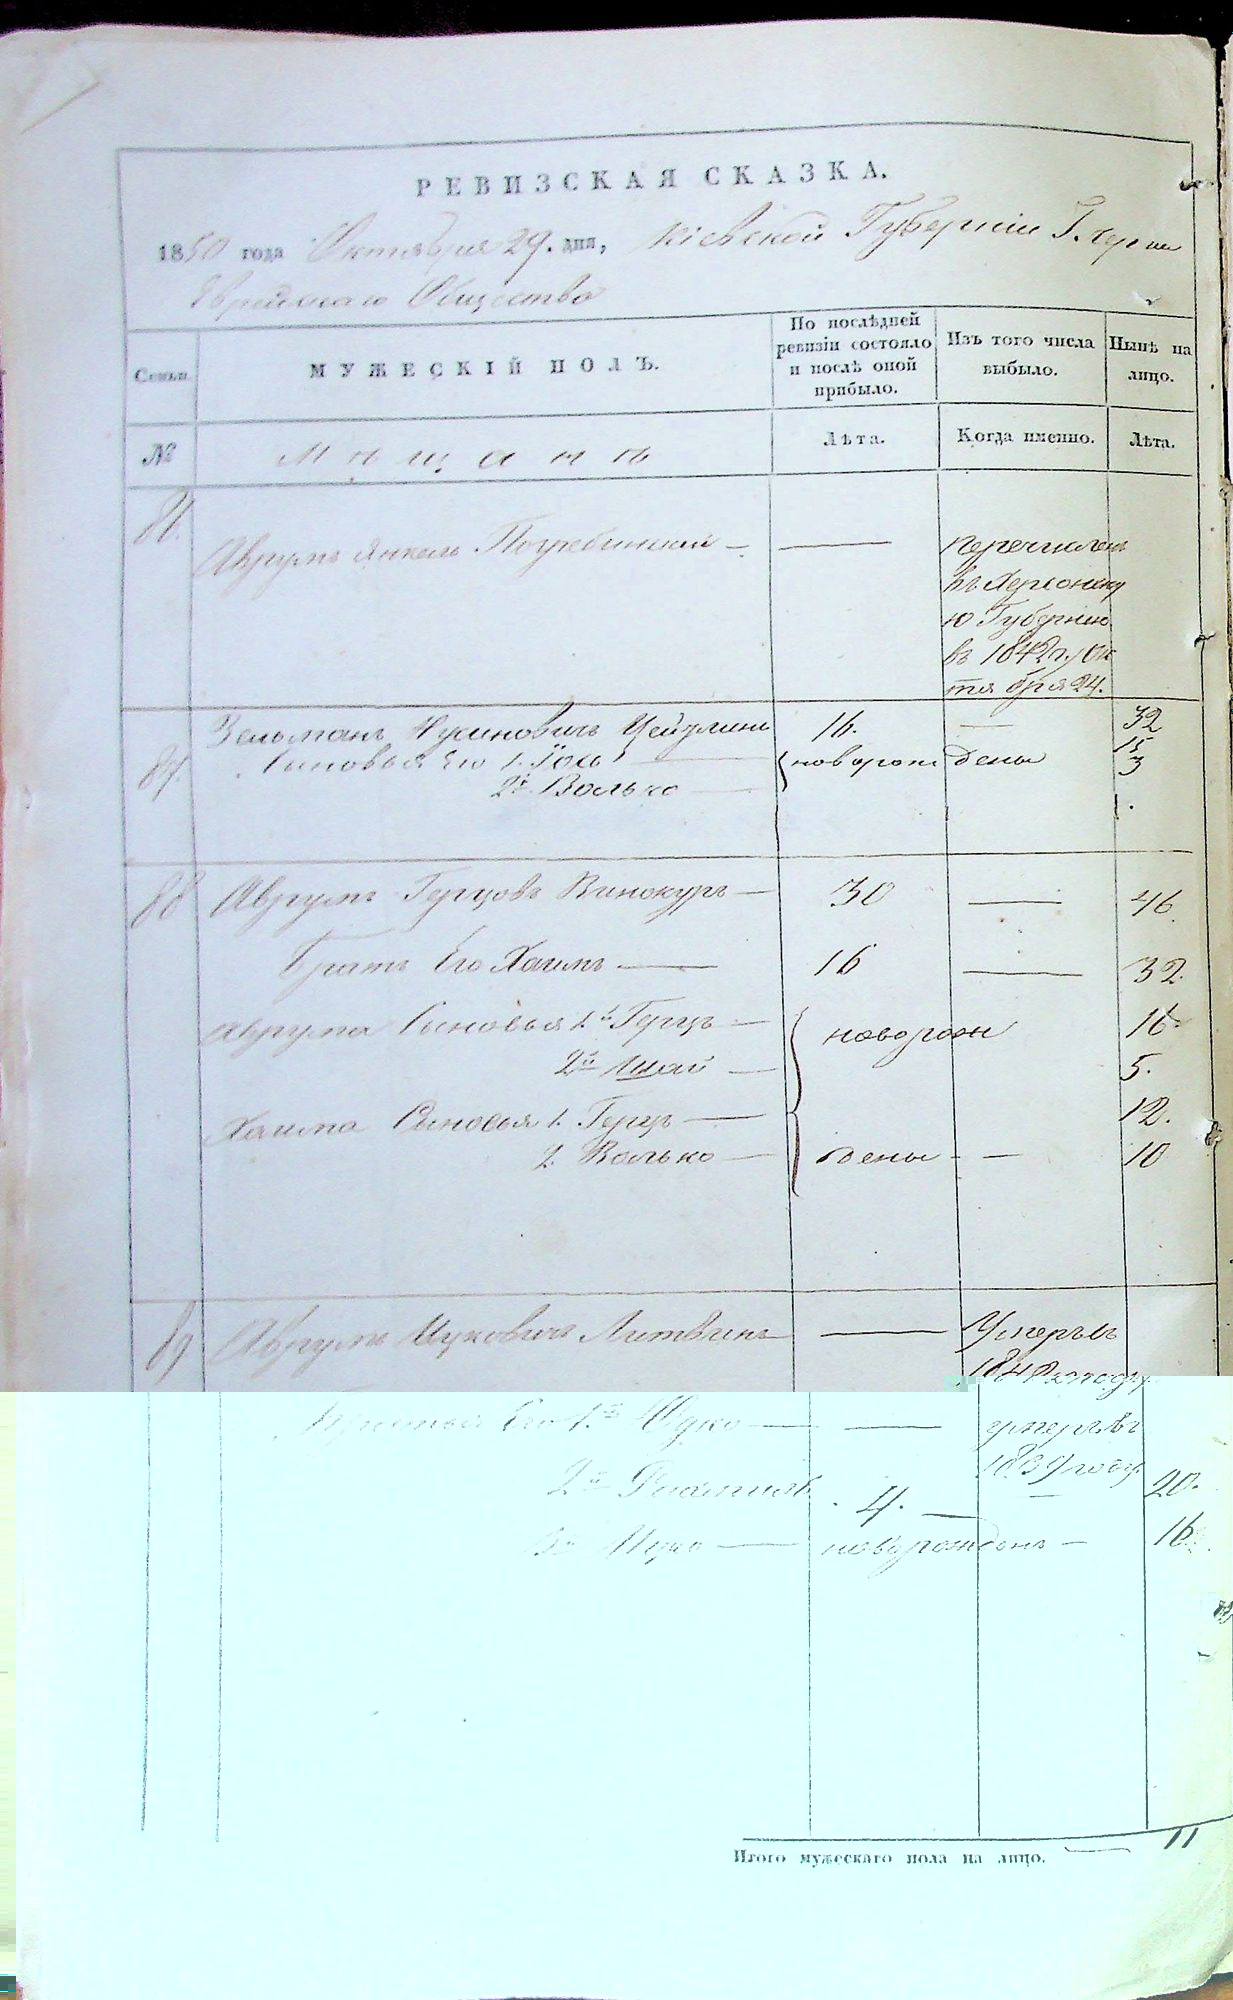 РЕВИЗСКАЯ СКАЗКА.
1850 года Октября 29. дня, Кіевской Губерніи Г.
Еврейскаго Общества
Семьи. МУЖЕСКІЙ ПОЛЪ. По послѣдней ревизіи состояло и послѣ оной прибыло. Изъ того числа выбыло. Нынѣ на лицо.
№ Мѣщанъ Лѣта. Когда именно. Лѣта.
Аврумъ Янкель Погребинский — — перечислен
въ Херсонску
ю Губернію
въ 1842 г. Ок
тября 24.
87. Зельманъ Нусиновичъ 16. — 32
Сыновья Его 1. новорож дены 15
2й Волько — 3
88 Аврумъ Герцовъ Винокуръ — 30 — 46
Братъ Его Хаимъ — 16 — 32.
Аврума Сыновья 1й Герцъ — новорож 16
2й Шай — 5.
Хаима Сыновья 1. Герцъ — 12.
2. Волько — дены — 10
89 Аврумъ Ицковичъ Литвинъ — Умеръ въ
184 году
Братья Его 1й — — умеръ въ
1839 году.
2й 4. — 20.
3й Ицко — новорожденъ — 16
Итого мужескаго пола на лицо. — 11